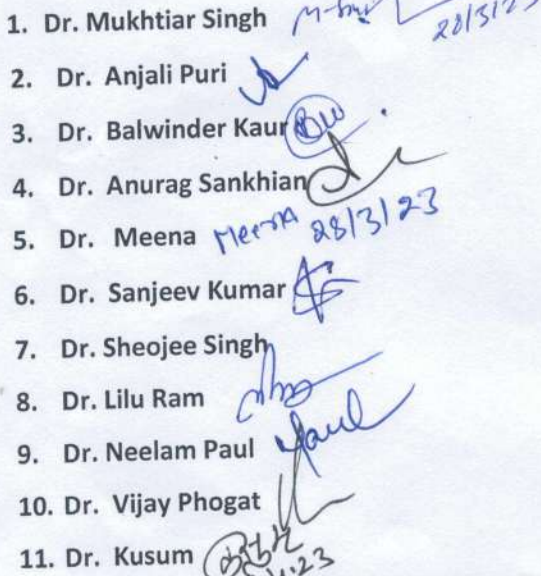 1. Dr. Mukhtiar Singh 28/3/23
2. Dr. Anjali Puri
3. Dr. Balwinder Kaur
4. Dr. Anurag Sankhian
5. Dr. Meena Meena 28/3/23
6. Dr. Sanjeev Kumar
7. Dr. Sheojee Singh
8. Dr. Lilu Ram
9. Dr. Neelam Paul Paul
10. Dr. Vijay Phogat
11. Dr. Kusum